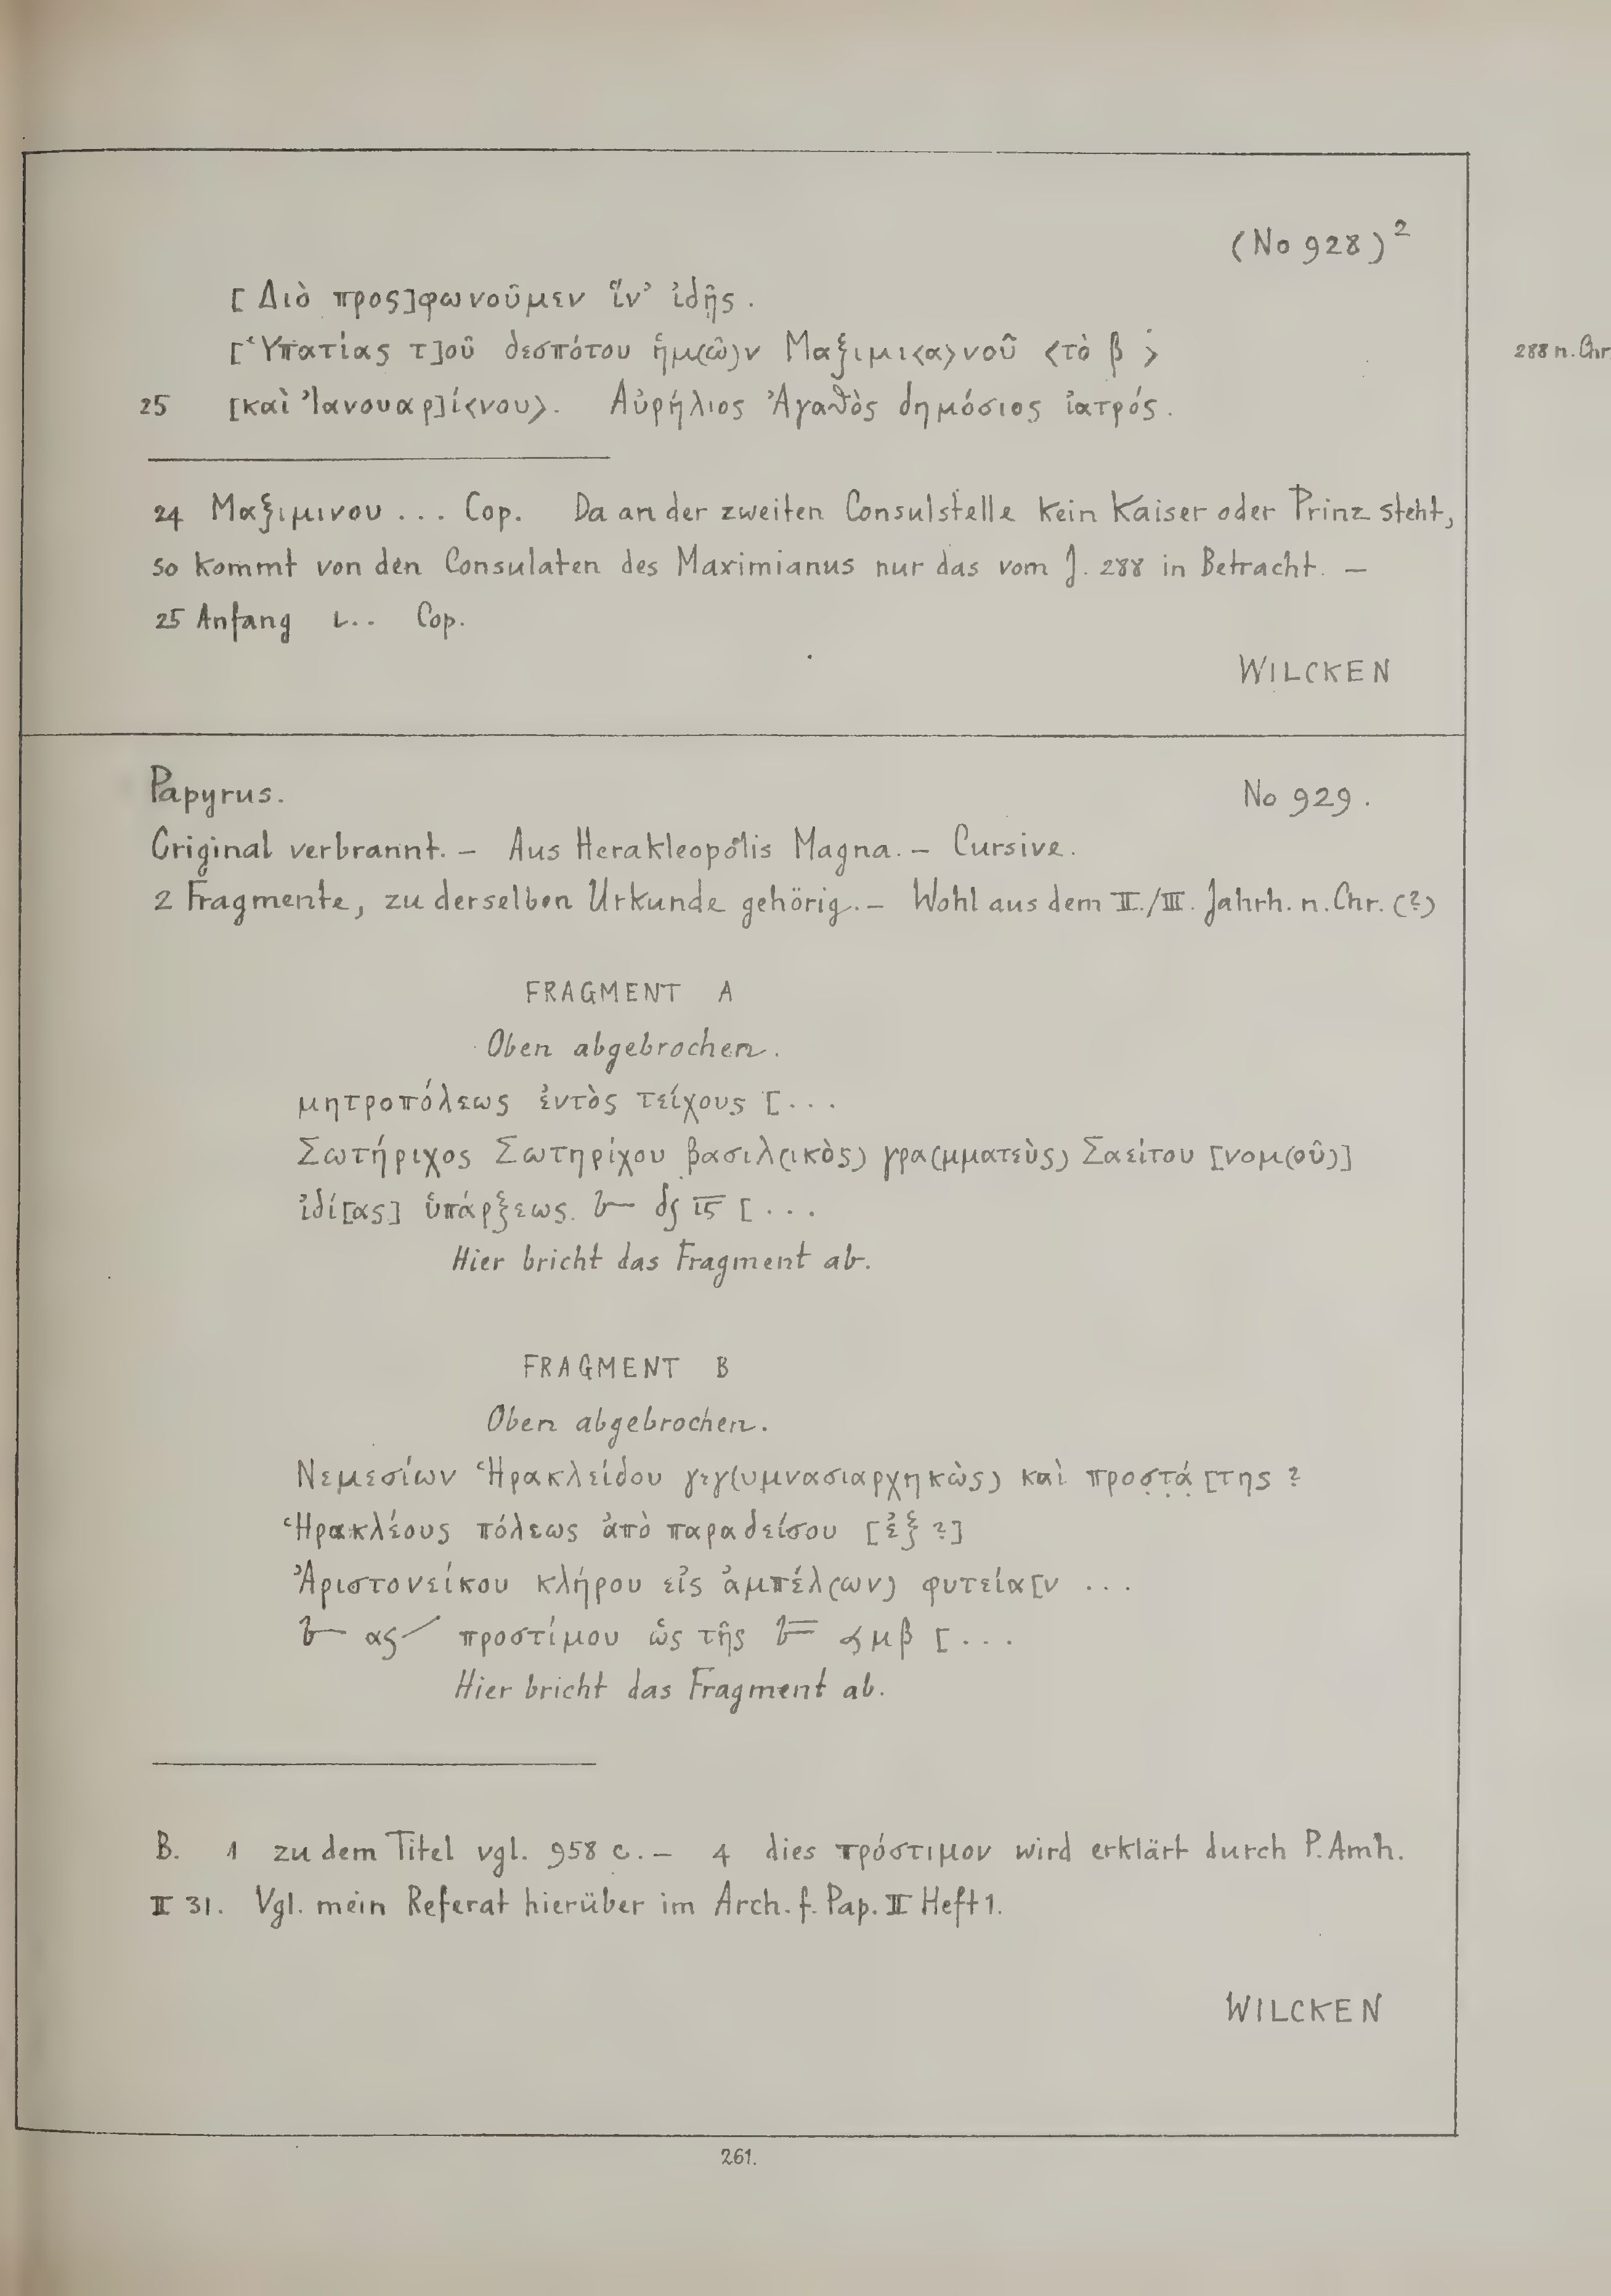 (No 928)²
[Διὸ προς]φωνοῦμεν ἵν' ἰδῇς.
[Ὑπατίας τ]οῦ δεσπότου ἡμ(ῶ)ν Μαξιμι<α>νοῦ <τὸ β> 288 n. Chr
25 [καὶ Ἰανουαρ]ί<νου>. Αὐρήλιος Ἀγαθὸς δημόσιος ἰατρός.
24 Μαξιμινου ... Cop. Da an der zweiten Consulstelle kein Kaiser oder Prinz steht,
so kommt von den Consulaten des Maximianus nur das vom J. 288 in Betracht. —
25 Anfang ι.. Cop.
WILCKEN
Papyrus. No 929.
Original verbrannt. — Aus Herakleopolis Magna. — Cursive.
2 Fragmente, zu derselben Urkunde gehörig. — Wohl aus dem II./III. Jahrh. n. Chr. (?)
FRAGMENT A
Oben abgebrochen.
μητροπόλεως ἐντὸς τείχους [...
Σωτήριχος Σωτηρίχου βασιλ(ικὸς) γρα(μματεὺς) Σαείτου [νομ(οῦ)]
ἰδί[ας] ὑπάρξεως. [...
Hier bricht das Fragment ab.
FRAGMENT B
Oben abgebrochen.
Νεμεσίων Ἡρακλείδου γεγ(υμνασιαρχηκὼς) καὶ προσ̣τ̣ά̣[της ?
Ἡρακλέους πόλεως ἀπὸ παραδείσου [ἐξ ?]
Ἀριστονείκου κλήρου εἰς ἀμπέλ(ων) φυτεία[ν ...
προστίμου ὡς τῆς μβ [...
Hier bricht das Fragment ab.
B. 1 zu dem Titel vgl. 958 c. — 4 dies πρόστιμον wird erklärt durch P. Amh.
II 31. Vgl. mein Referat hierüber im Arch. f. Pap. II Heft 1.
WILCKEN
261.